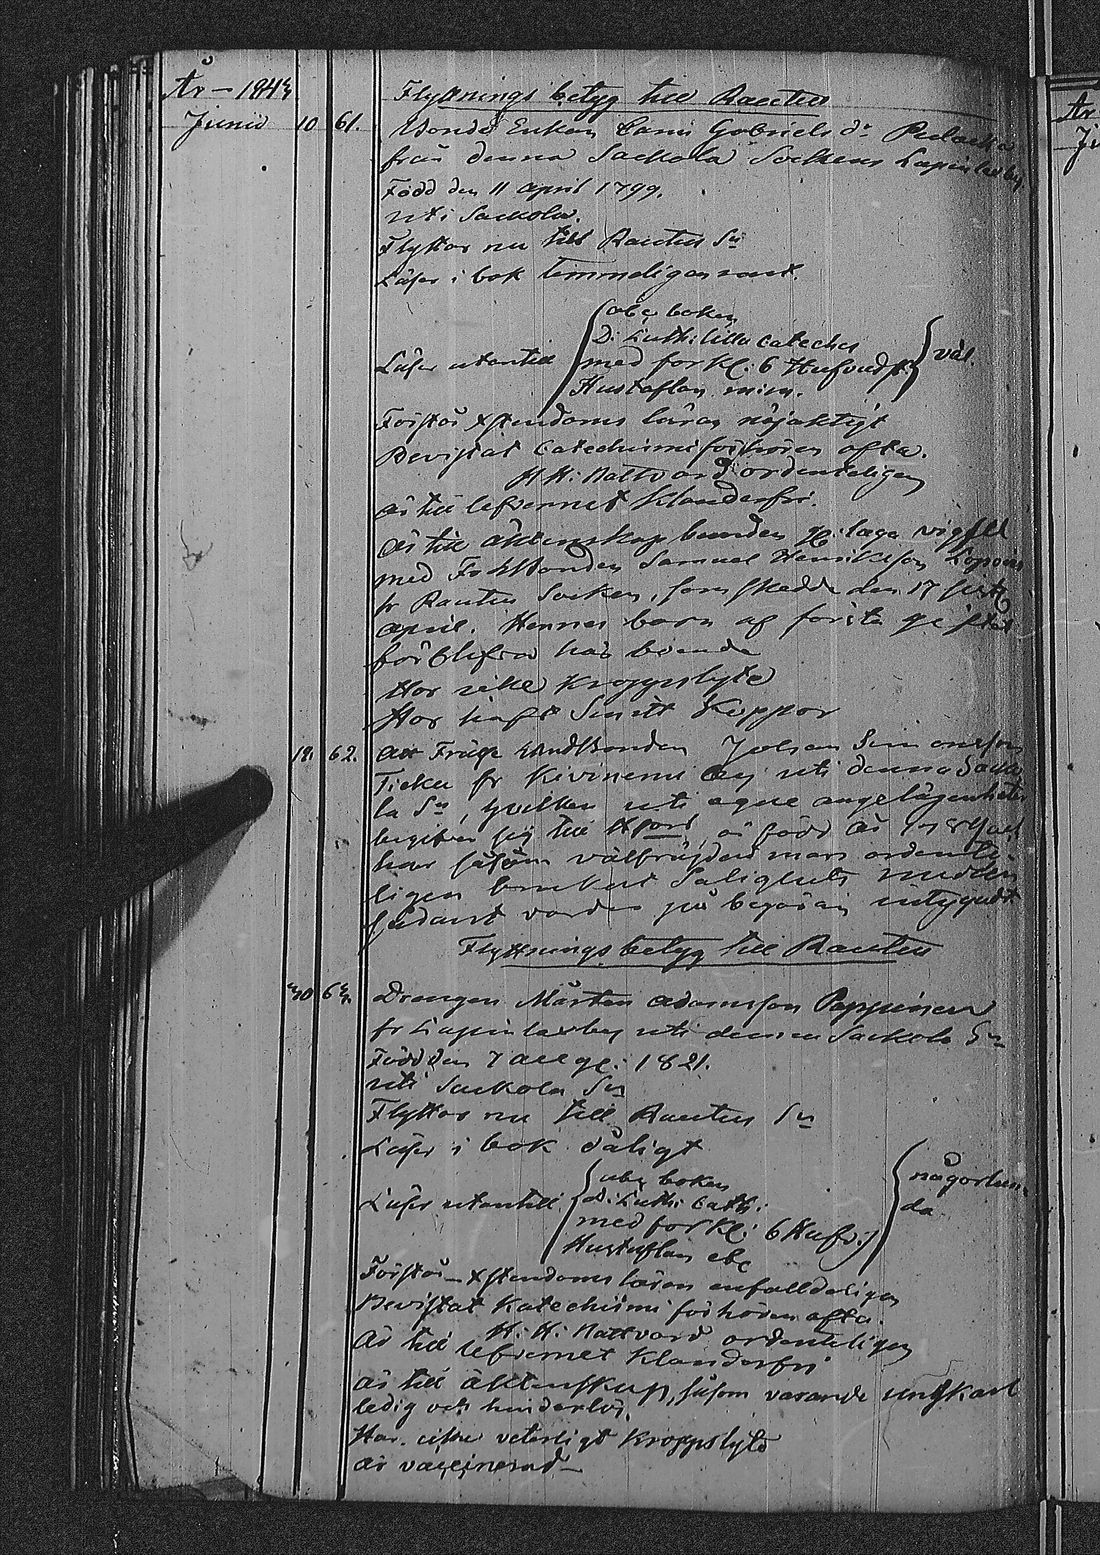 År - 1843
Flyttnings betyg till Rautus
Junii 10 61. Bonde Enkan Carin Gabriels dr
från denna Sackola Sockens Lapinlax by
Född den 11 april 1799.
uti Sackola.
Flyttar nu till Rautus Sn
Läser i bok temmeligen rent.
Läser utantill abc boken
D: Luth: lilla cateches
med förkl: 6 Hufvudst
Hustaflan min. väl.
Förstår Xstendoms läran nöjaktigt
Bevistat Catechismiförhören ofta.
H H: Nattvard ordenteligen
är till lefvernet Klanderfri.
är till äktenskap bunden gn laga vigsel
med Bonden Samuel Henriksson
fr Rautus Socken, som skedde den 17 sistl
april. Hennes barn af första giftet
förblifva här boende
Har icke kroppslyte
Har haft Smitt Koppor
18. 62. Att Bonden Simonsson
fr Kivinemi by uti denna Sacko
la Sn, hvilken uti egne angelägenheter
begifver sig till, är född år
har såsom välfrägdad man ordente-
ligen brukat Salighets medlen
sådant varder på begäran intygadt
Flyttnings betyg till Rautus
30 63. Drengen Mårten Adamsson Peppinen
fr Lapinlax by uti denna Sackola Sn
Född den 7 aug: 1821.
uti Sackola Sn
Flyttar nu till Rautus Sn
Läser i bok dåligt
Läser utantill abc boken
D: Luth: Cath:
med förkl: 6 Hufv:
Hustaflan etc någorlun-
da
Förstår Xstendoms läran enfalldeligen
Bevistat Katechismi förhören ofta.
H. H. Nattvard ordenteligen
är till lefvernet Klanderfri
är till äktenskap, såsom varande ungkarl
ledig och hinderlös.
Har icke veterligt kroppslyte
är vaccinerad -